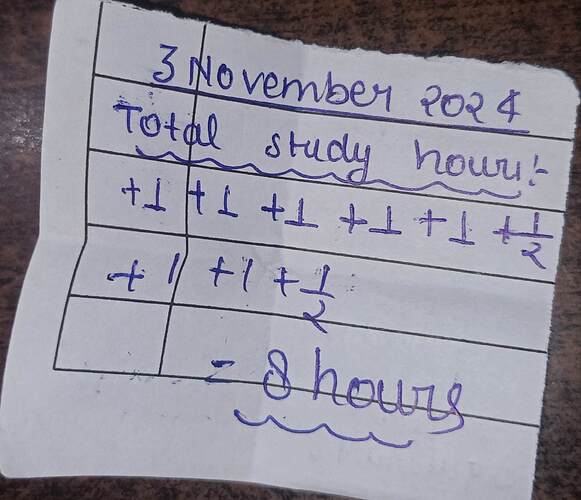 3 November 2024
Total study hours:-
+1 +1 +1 +1 +1 +1/2
+1 +1 +1/2
= 8 hours